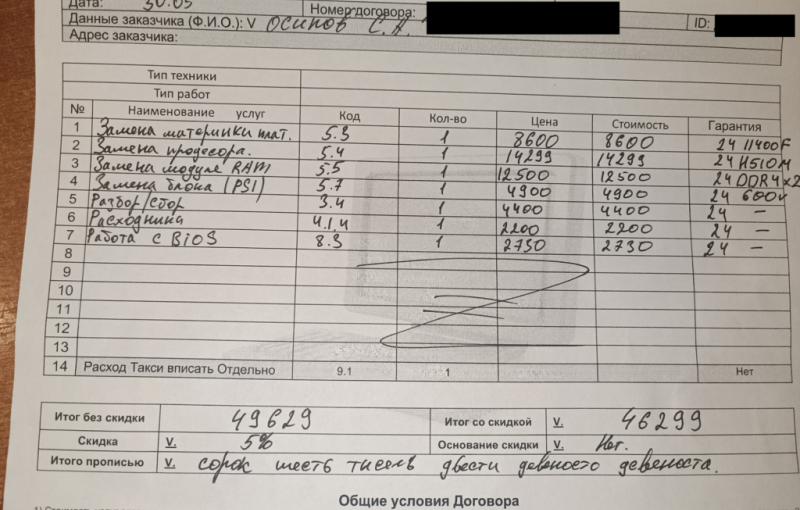 Дата: 30.05
Номер договора:
Данные заказчика (Ф.И.О.): V Осипов С.А. ID:
Адрес заказчика:
Тип техники
Тип работ
№ Наименование услуг Код Кол-во Цена Стоимость Гарантия
1 Замена материнки плат. 5.3 1 8600 8600 24 11400F
2 Замена продесора. 5.4 1 14299 14299 24 H510M
3 Замена модуле RAM 5.5 1 12500 12500 24 DDR4x2
4 Замена блока (PSI) 5.7 1 4900 4900 24 600v
5 Разбор/сбор 3.4 1 4400 4400 24 –
6 Расходника 4.1.4 1 2200 2200 24 –
7 Работа с BiOS 8.3 1 2730 2730 24 –
8
9
10
11
12
13
14 Расход Такси вписать Отдельно 9.1 1 Нет
Итог без скидки 49629 Итог со скидкой V. 46299
Скидка V. 5% Основание скидки V. Нет.
Итого прописью V. сорок шесть тисень двести девеносто девеноста.
Общие условия Договора